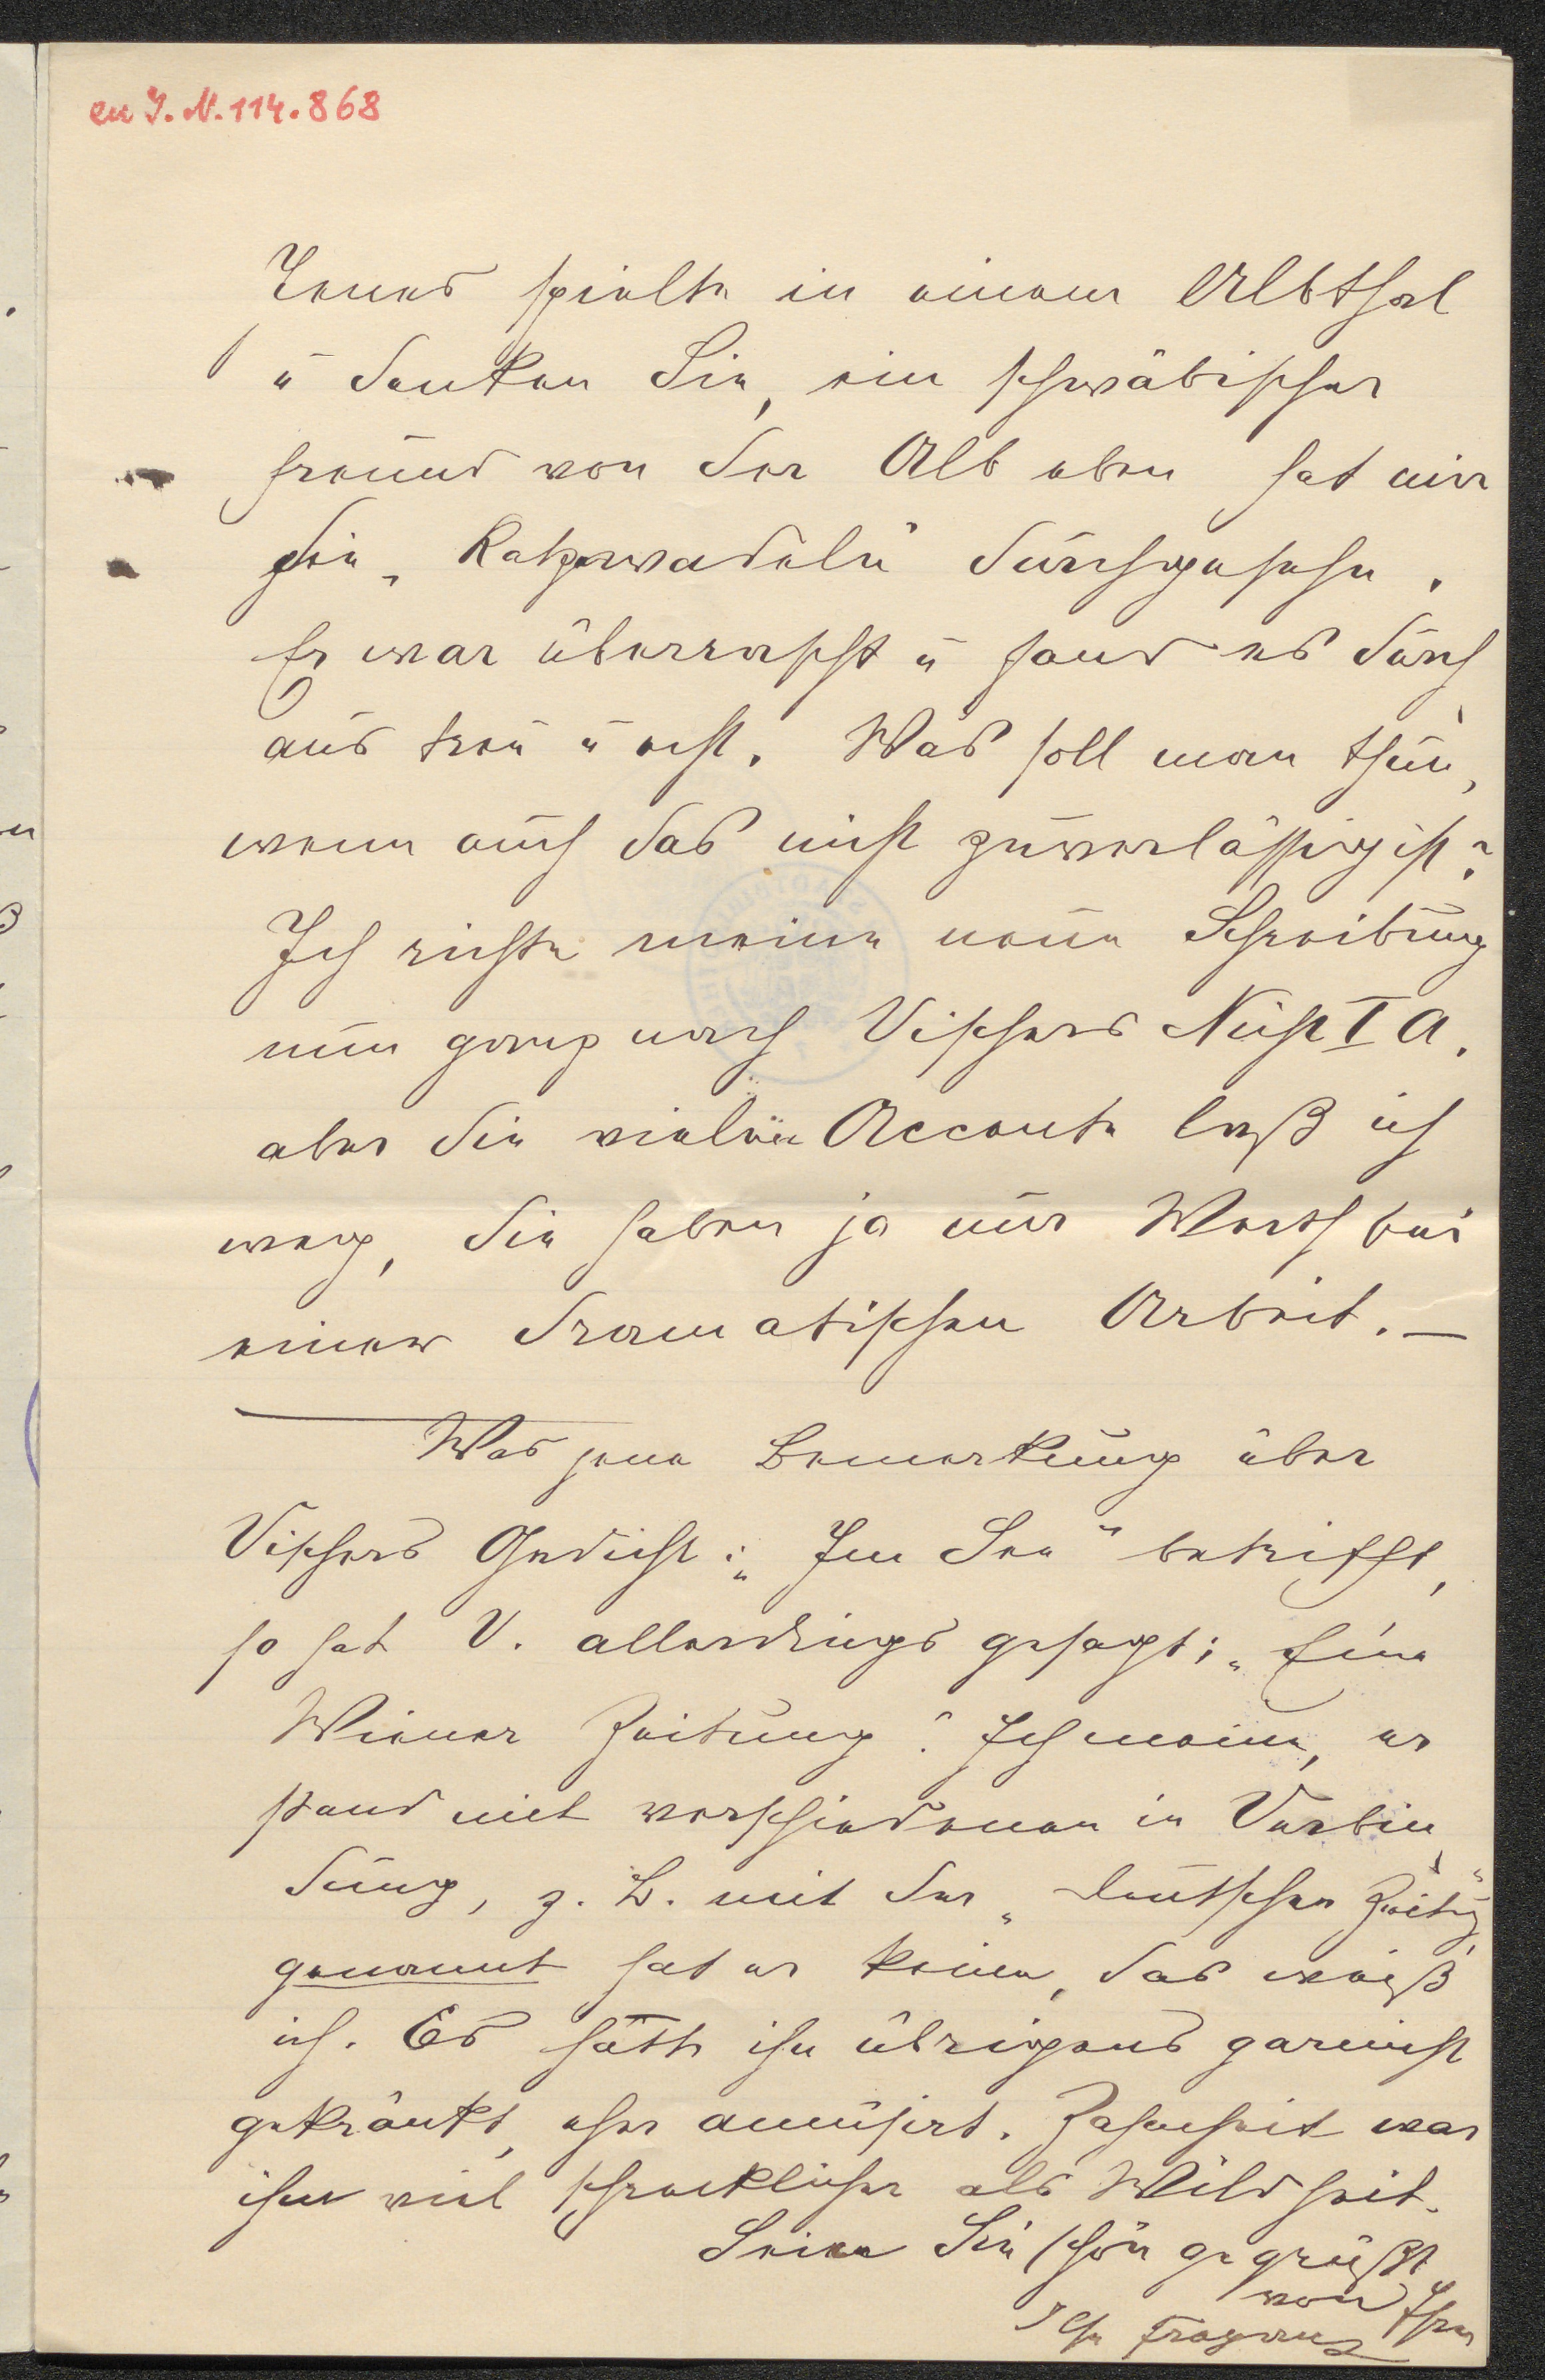 en J. N. 114.868
Jenes spielte in einem Albthal
u denken Sie, ein schwäbischer
Freund von der Alb oben hat mir
die „Ratzawadele" durchgesehn.
Er war überrascht u fand es durch
aus treu u echt. Was soll man thun,
wenn auch das nicht zuverlässig ist?
Ich richte meine neue Schreibung
nun ganz nach Vischers Nicht I A.
aber die vielen Accente laß ich
weg, die haben ja nur Werth bei
einer dramatischen Arbeit. —
Was jene Bemerkung über
Vischers Gedicht: „Im See" betrifft,
so hat V. allerdings gesagt: „Eine
Wiener Zeitung". Ich meine, er
stand mit verschiedenen in Verbin
dung, z. B. mit der „deutschen Zeitg"
genannt hat er keine, das weiß
ich. Es hätte ihn übrigens garnicht
gekränkt, eher amüsirt. Zahmheit war
ihm viel schrecklicher als Wildheit.
Seien Sie schön gegrüßt
von Ihrer
Ilse Frapan